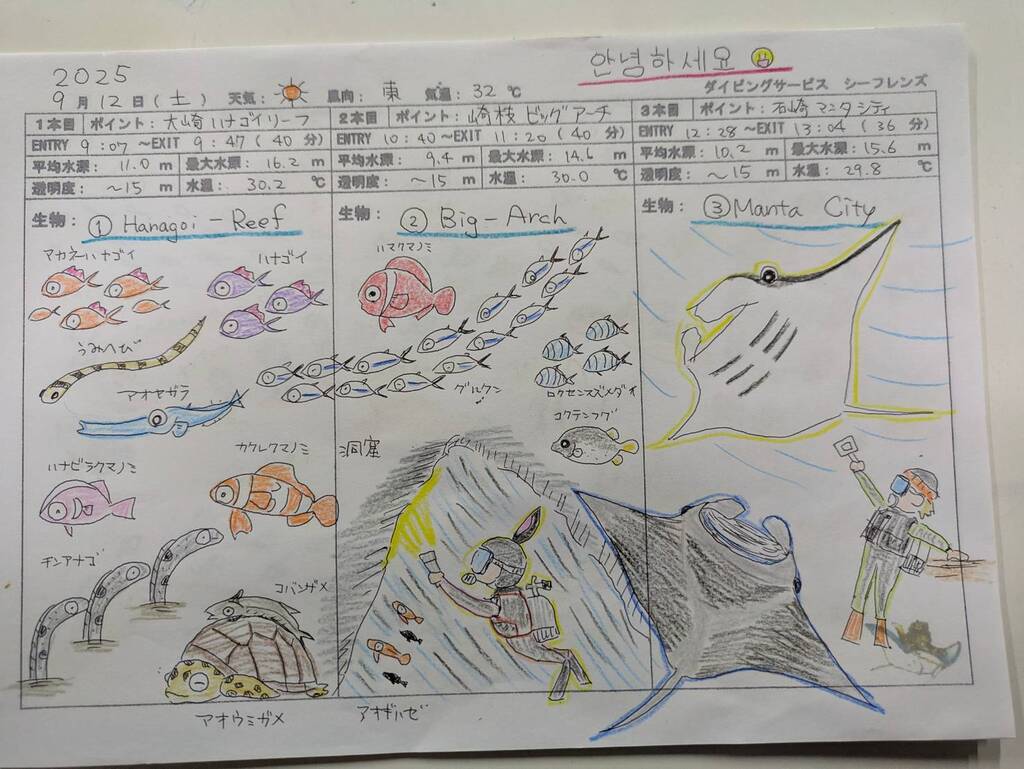 안녕하세요
2025
9月12日(土) 天気: 風向: 東 気温: 32℃
ダイビングサービス シーフレンズ
1本目 ポイント: 大崎ハナゴイリーフ
ENTRY 9:07 ~EXIT 9:47 (40分)
平均水深: 11.0 m 最大水深: 16.2 m
透明度: ~15 m 水温: 30.2 ℃
生物: ① Hanagoi-Reef
アカネハナゴイ
ハナゴイ
うみへび
アオヤガラ
ハナビラクマノミ
カクレクマノミ
チンアナゴ
コバンザメ
アオウミガメ
2本目 ポイント: 崎枝 ビッグアーチ
ENTRY 10:40 ~EXIT 11:20 (40分)
平均水深: 9.4 m 最大水深: 14.6 m
透明度: ~15 m 水温: 30.0 ℃
生物: ② Big-Arch
ハマクマノミ
グルクン
ロクセンスズメダイ
コクテンフグ
洞窟
3本目 ポイント: 石崎 マンタシティ
ENTRY 12:28 ~EXIT 13:04 (36分)
平均水深: 10.2 m 最大水深: 15.6 m
透明度: ~15 m 水温: 29.8 ℃
生物: ③ Manta City